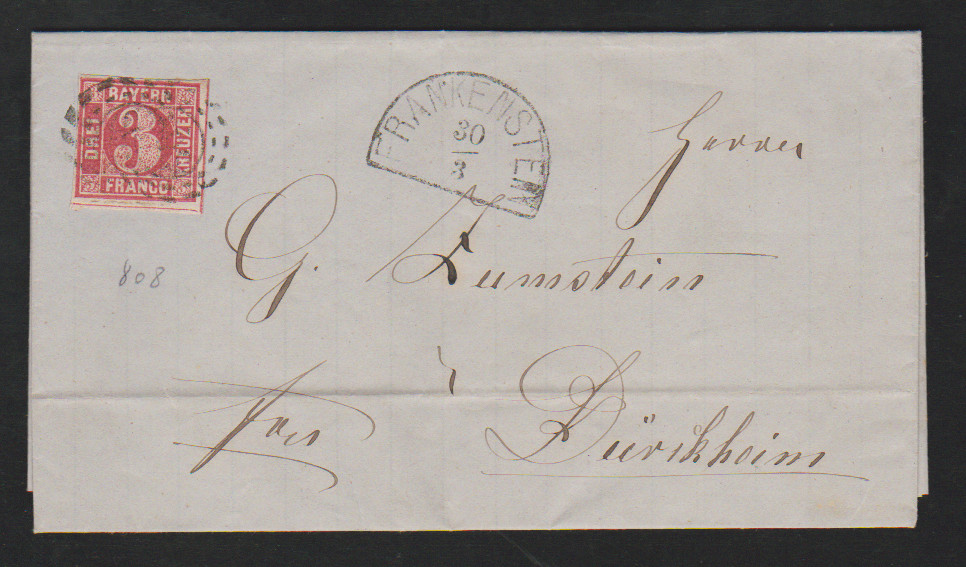 BAYERN
DREI 3 KREUZER
FRANCO
FRANKENSTEIN
30
3
Herrn
G. Zumstein
808
frei
Dürckheim